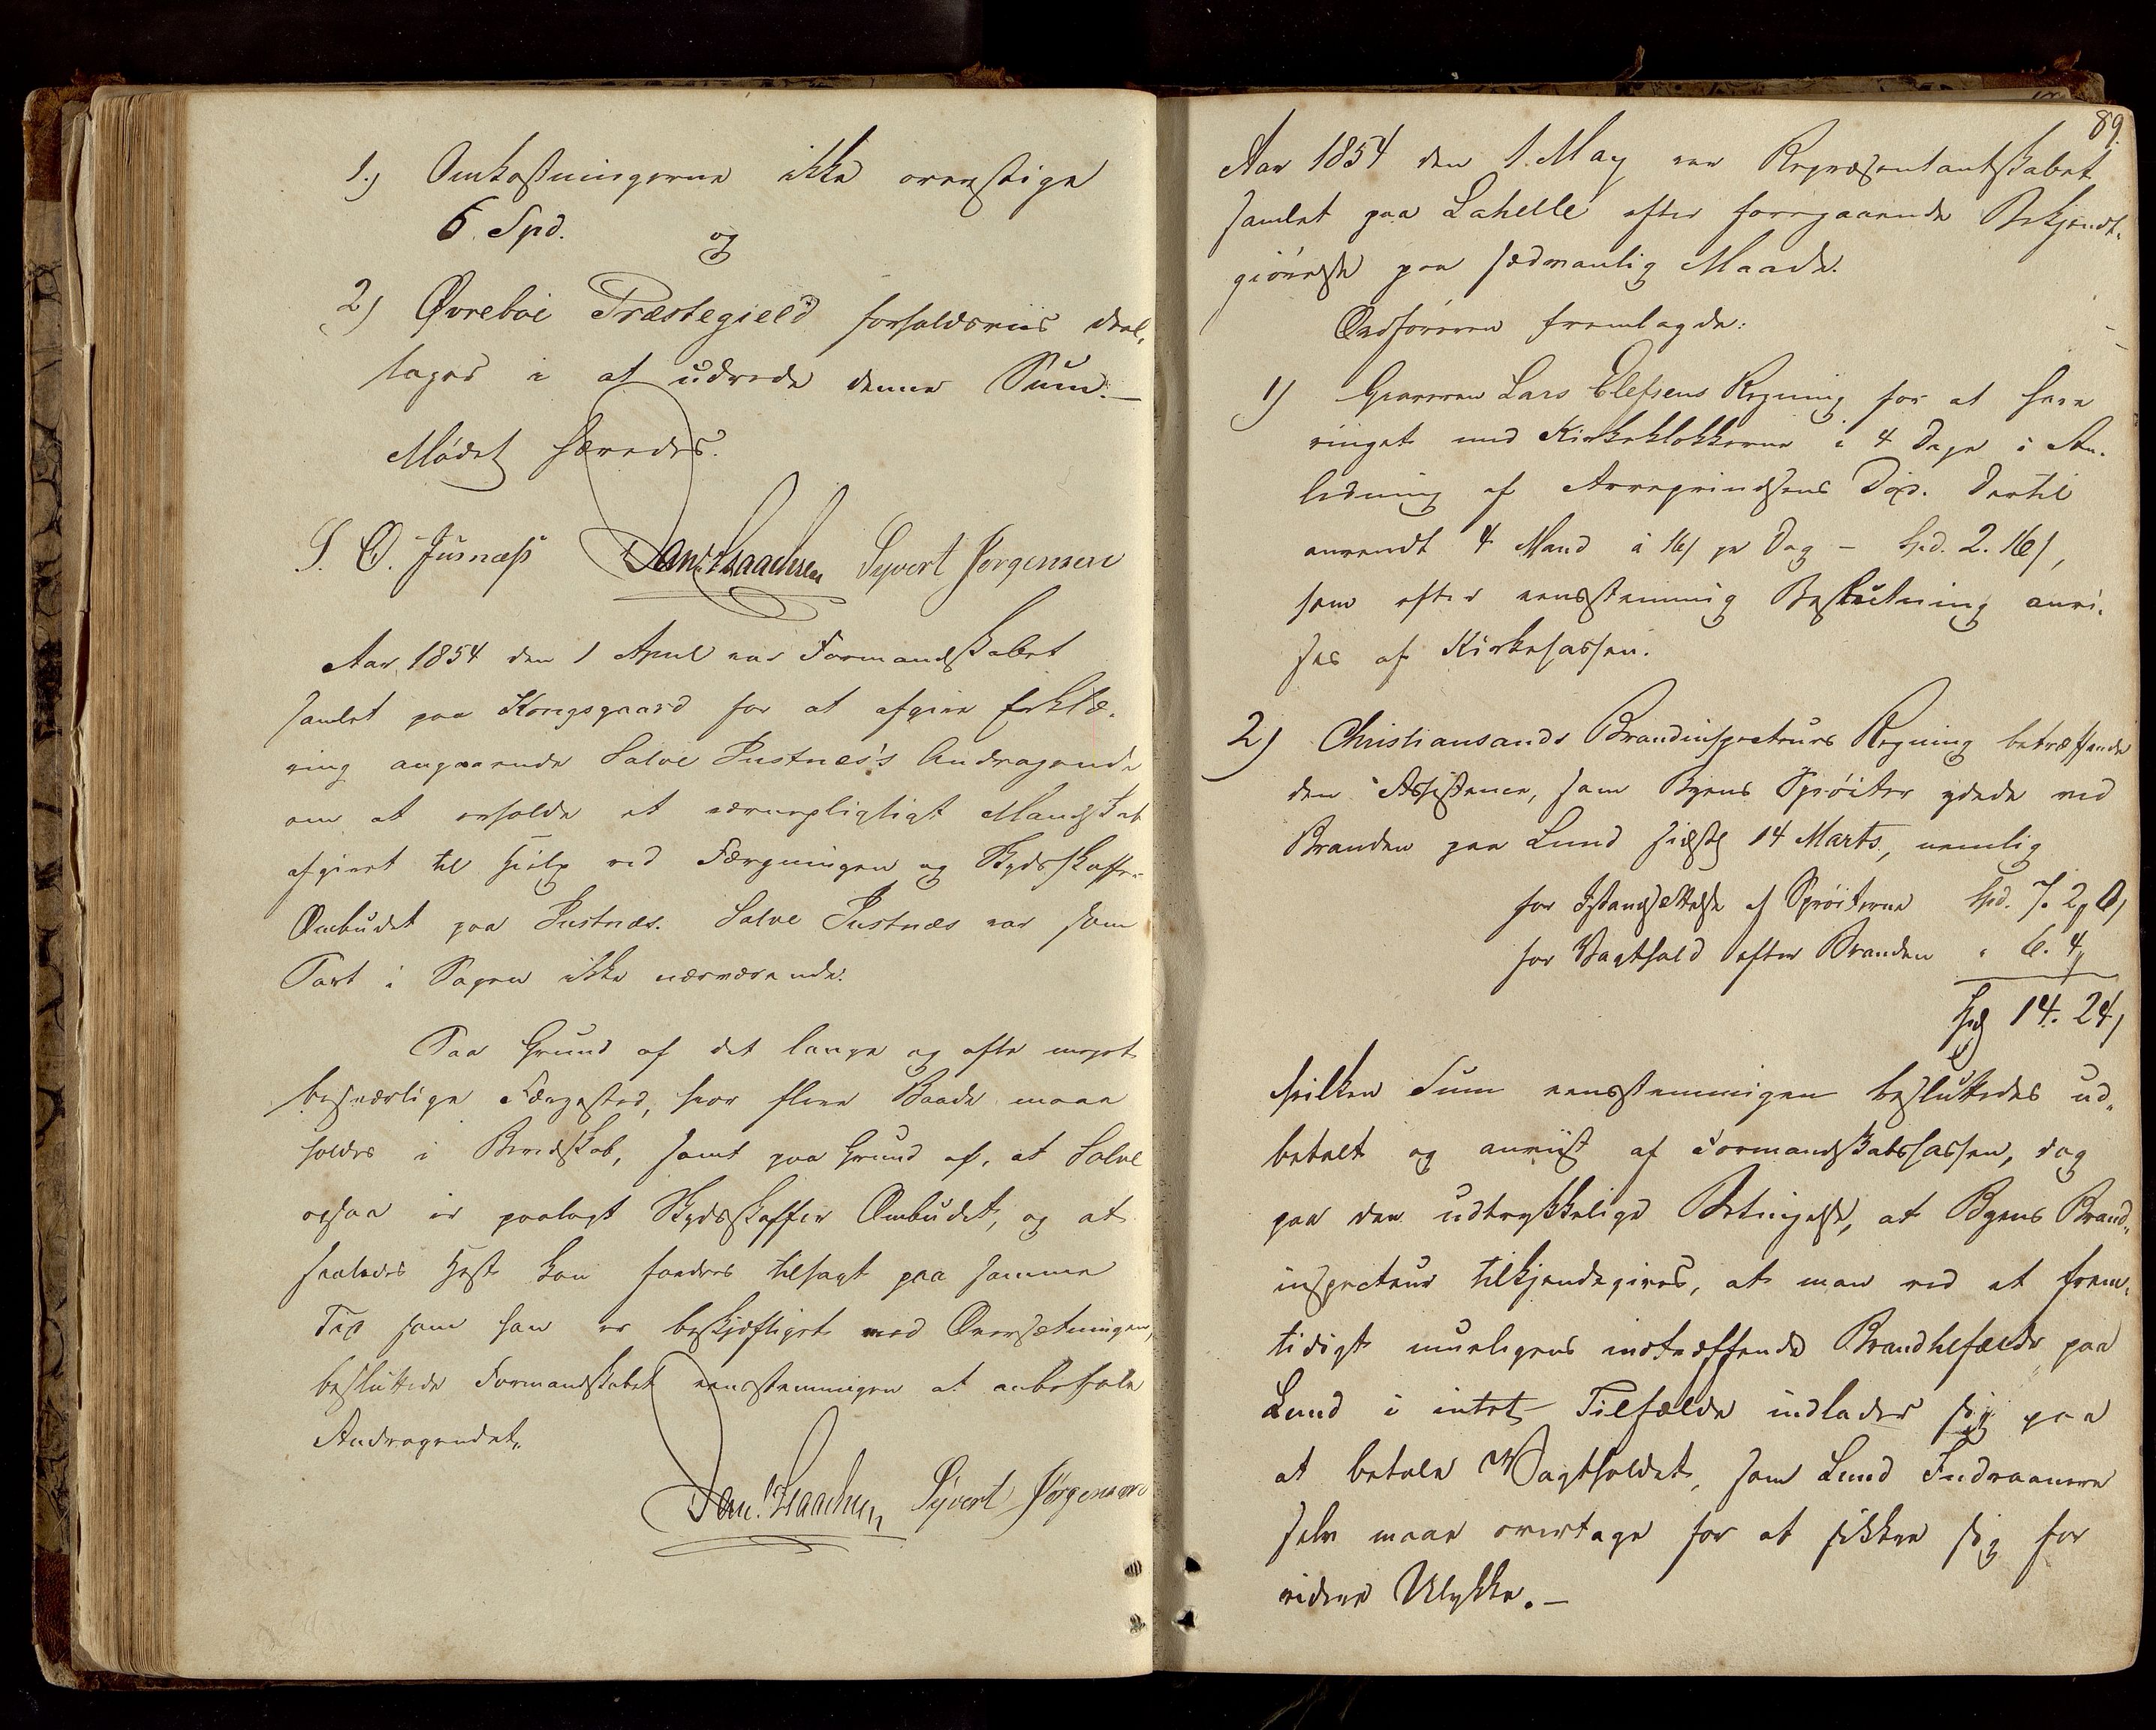 1.) Omkostningerne ikke overstige
6 Spd.
og
2) Øvreboe Præstegield forholdsviis deel-
tager i at udrede denne Sum.—
Mødet hævedes.
S. O. Jusnæss Dan. Isaachsen Syvert Jørgensen
Aar 1854 den 1 April var Formandskabet
samlet paa Kongsgaard for at afgive Erklæ-
ring angaaende Salve Justnes's Andragende
om at erholde et værnepligtigt Mandskab
afgivet til Hielp ved Færgningen og Skydsskaffer-
Ombudet paa Justnæs. Salve Justnæs var som
Part i Sagen ikke nærværende.
Paa Grund af det lange og ofte meget
besværlige Færgested, hvor flere Baade maae
holdes i Beredskab, samt paa Grund af, at Salve
ogsaa er paalagt Skydsskaffer Ombudet, og at
saaledes Hest kan fordres tilsagt paa samme
Tid som han er beskjæftiget med Oversætningen,
besluttede Formandskabet eensstemmigen at anbefale
Andragendet.
Dan. Isaachsen Syvert Jørgensen
89.
Aar 1854 den 1. May var Repræsentantskabet
samlet paa Lahelle efter foregaaende Bekjendt-
giørelse paa sædvanlig Maade.
Ordføreren fremlagde:
1) Graveren Lars Elefsens Regning for at have
ringet med Kirkeklokkerne i 4 Dage i An-
ledning af Arveprindsens Død. Dertil
anvendt 4 Mand à 16 ſ pr Dag — Spd. 2. 16 ſ,
som efter eensstemmig Beslutning anvi-
ses af Kirkekassen.
2) Christiansands Brandinspecteurs Regning betræffende
den Assistence, som Byens Sprøiter ydede ved
Branden paa Lund sidste 14 Marts, nemlig
for Istandsættelse af Sprøiterne Spd. 7. 2 " 0 ſ
for Vagthold efter Branden " 6. 4 "
Spd 14. 24 ſ
hvilken Sum eensstemmigen besluttedes ud-
betalt og anviist af Formandskabskassen, dog
paa den udtrykkelige Betingelse, at Byens Brand-
inspecteur tilkjendegives, at man ved et frem-
tidigt mueligens indtræffende Brandtilfælde paa
Lund i intet Tilfælde indlader sig paa
at betale Vagtholdet, som Lund Indvaanere
selv maae overtage for at sikkre sig for
videre Ulykke.—